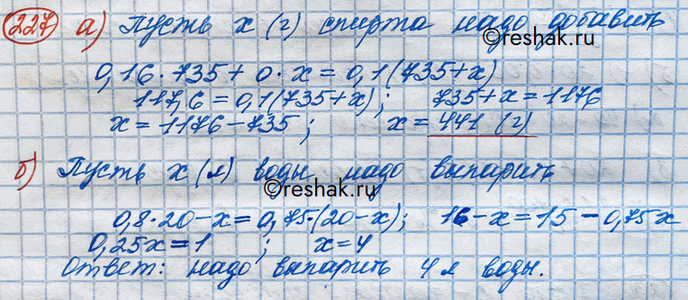 227 а) Пусть x (г) спирта надо добавить
reshak.ru
0,16·735+0·x=0,1(735+x)
117,6=0,1(735+x); 735+x=1176
x=1176-735; x=441 (г)
б) Пусть x (л) воды надо выпарить
reshak.ru
0,8·20-x=0,75·(20-x); 16-x=15-0,75x
0,25x=1; x=4
Ответ: надо выпарить 4 л воды.